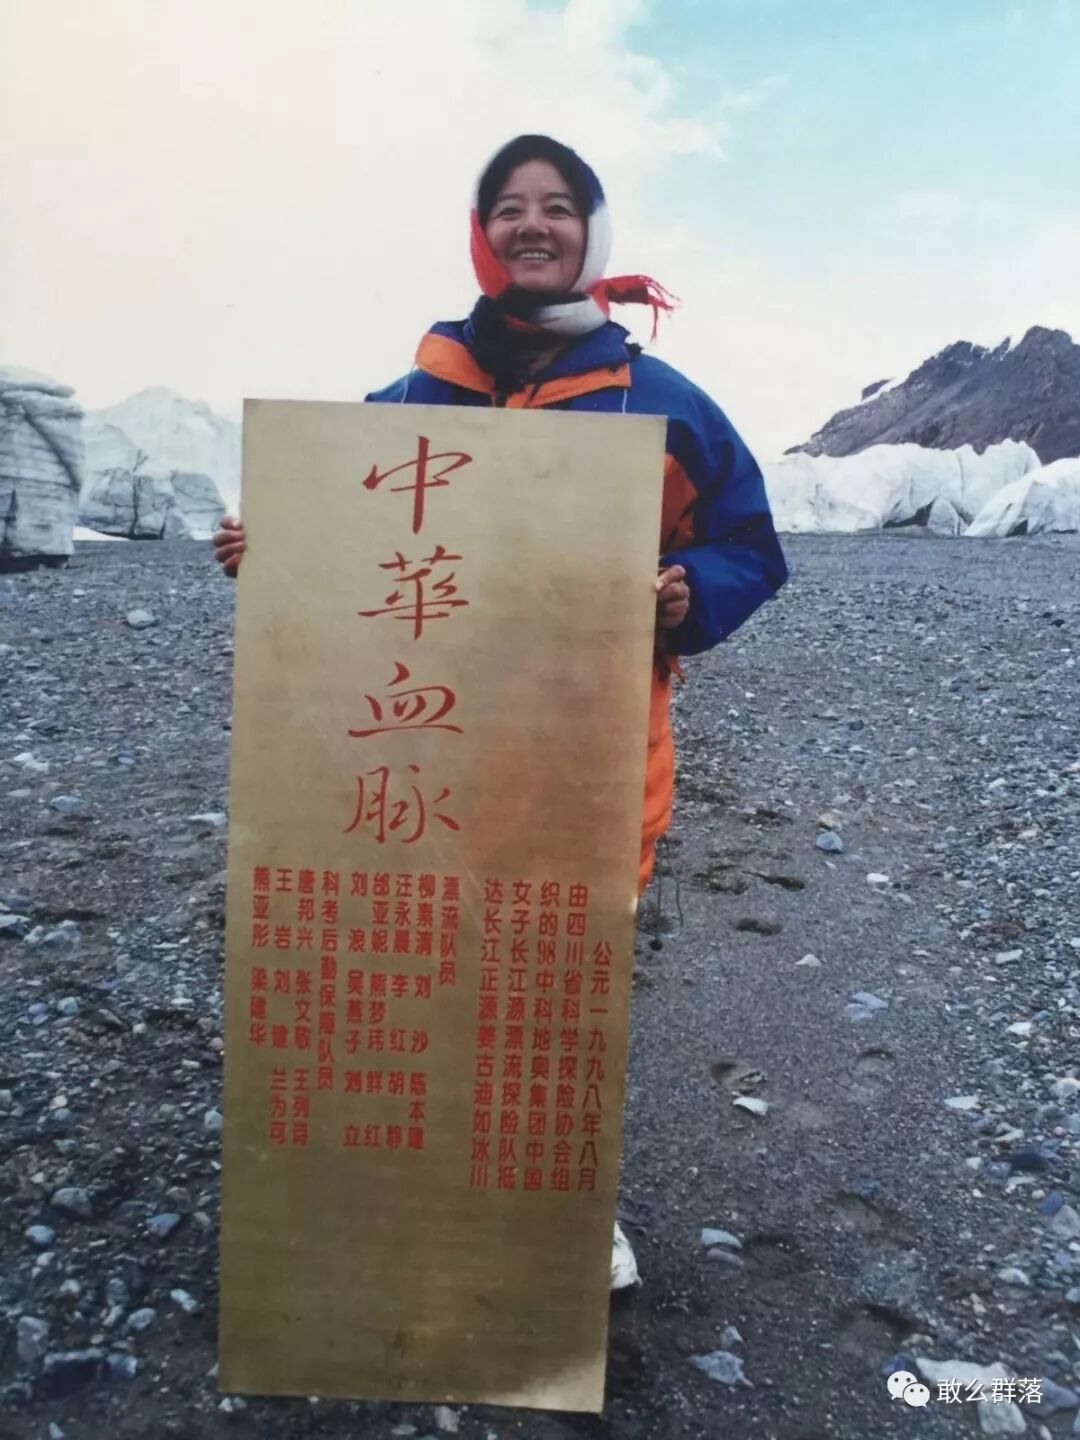 中華血脉
公元一九九八年八月
由四川省科学探险协会组
织的98中科地奥集团中国
女子长江源漂流探险队抵
达长江正源姜古迪如冰川
漂流队员
柳素清 刘 沙 陈本建
汪永晨 李 红 胡 静
邰亚妮 熊梦玮 鲜 红
刘 浪 吴燕子 刘 立
科考后勤保障队员
唐邦兴 张文敬 王列诗
王 岩 刘 建 兰为可
熊亚彤 梁建华
敢么群落